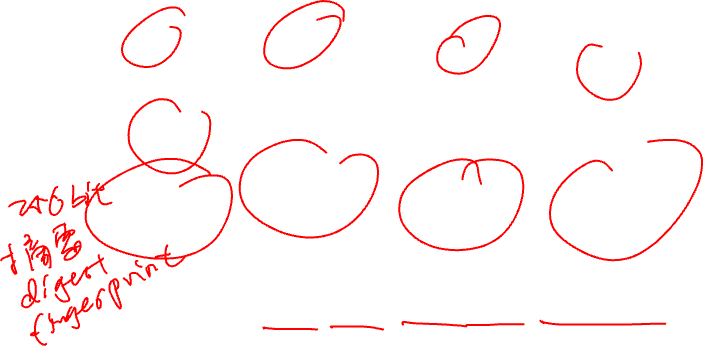 256bit
摘要
digest
fingerprint